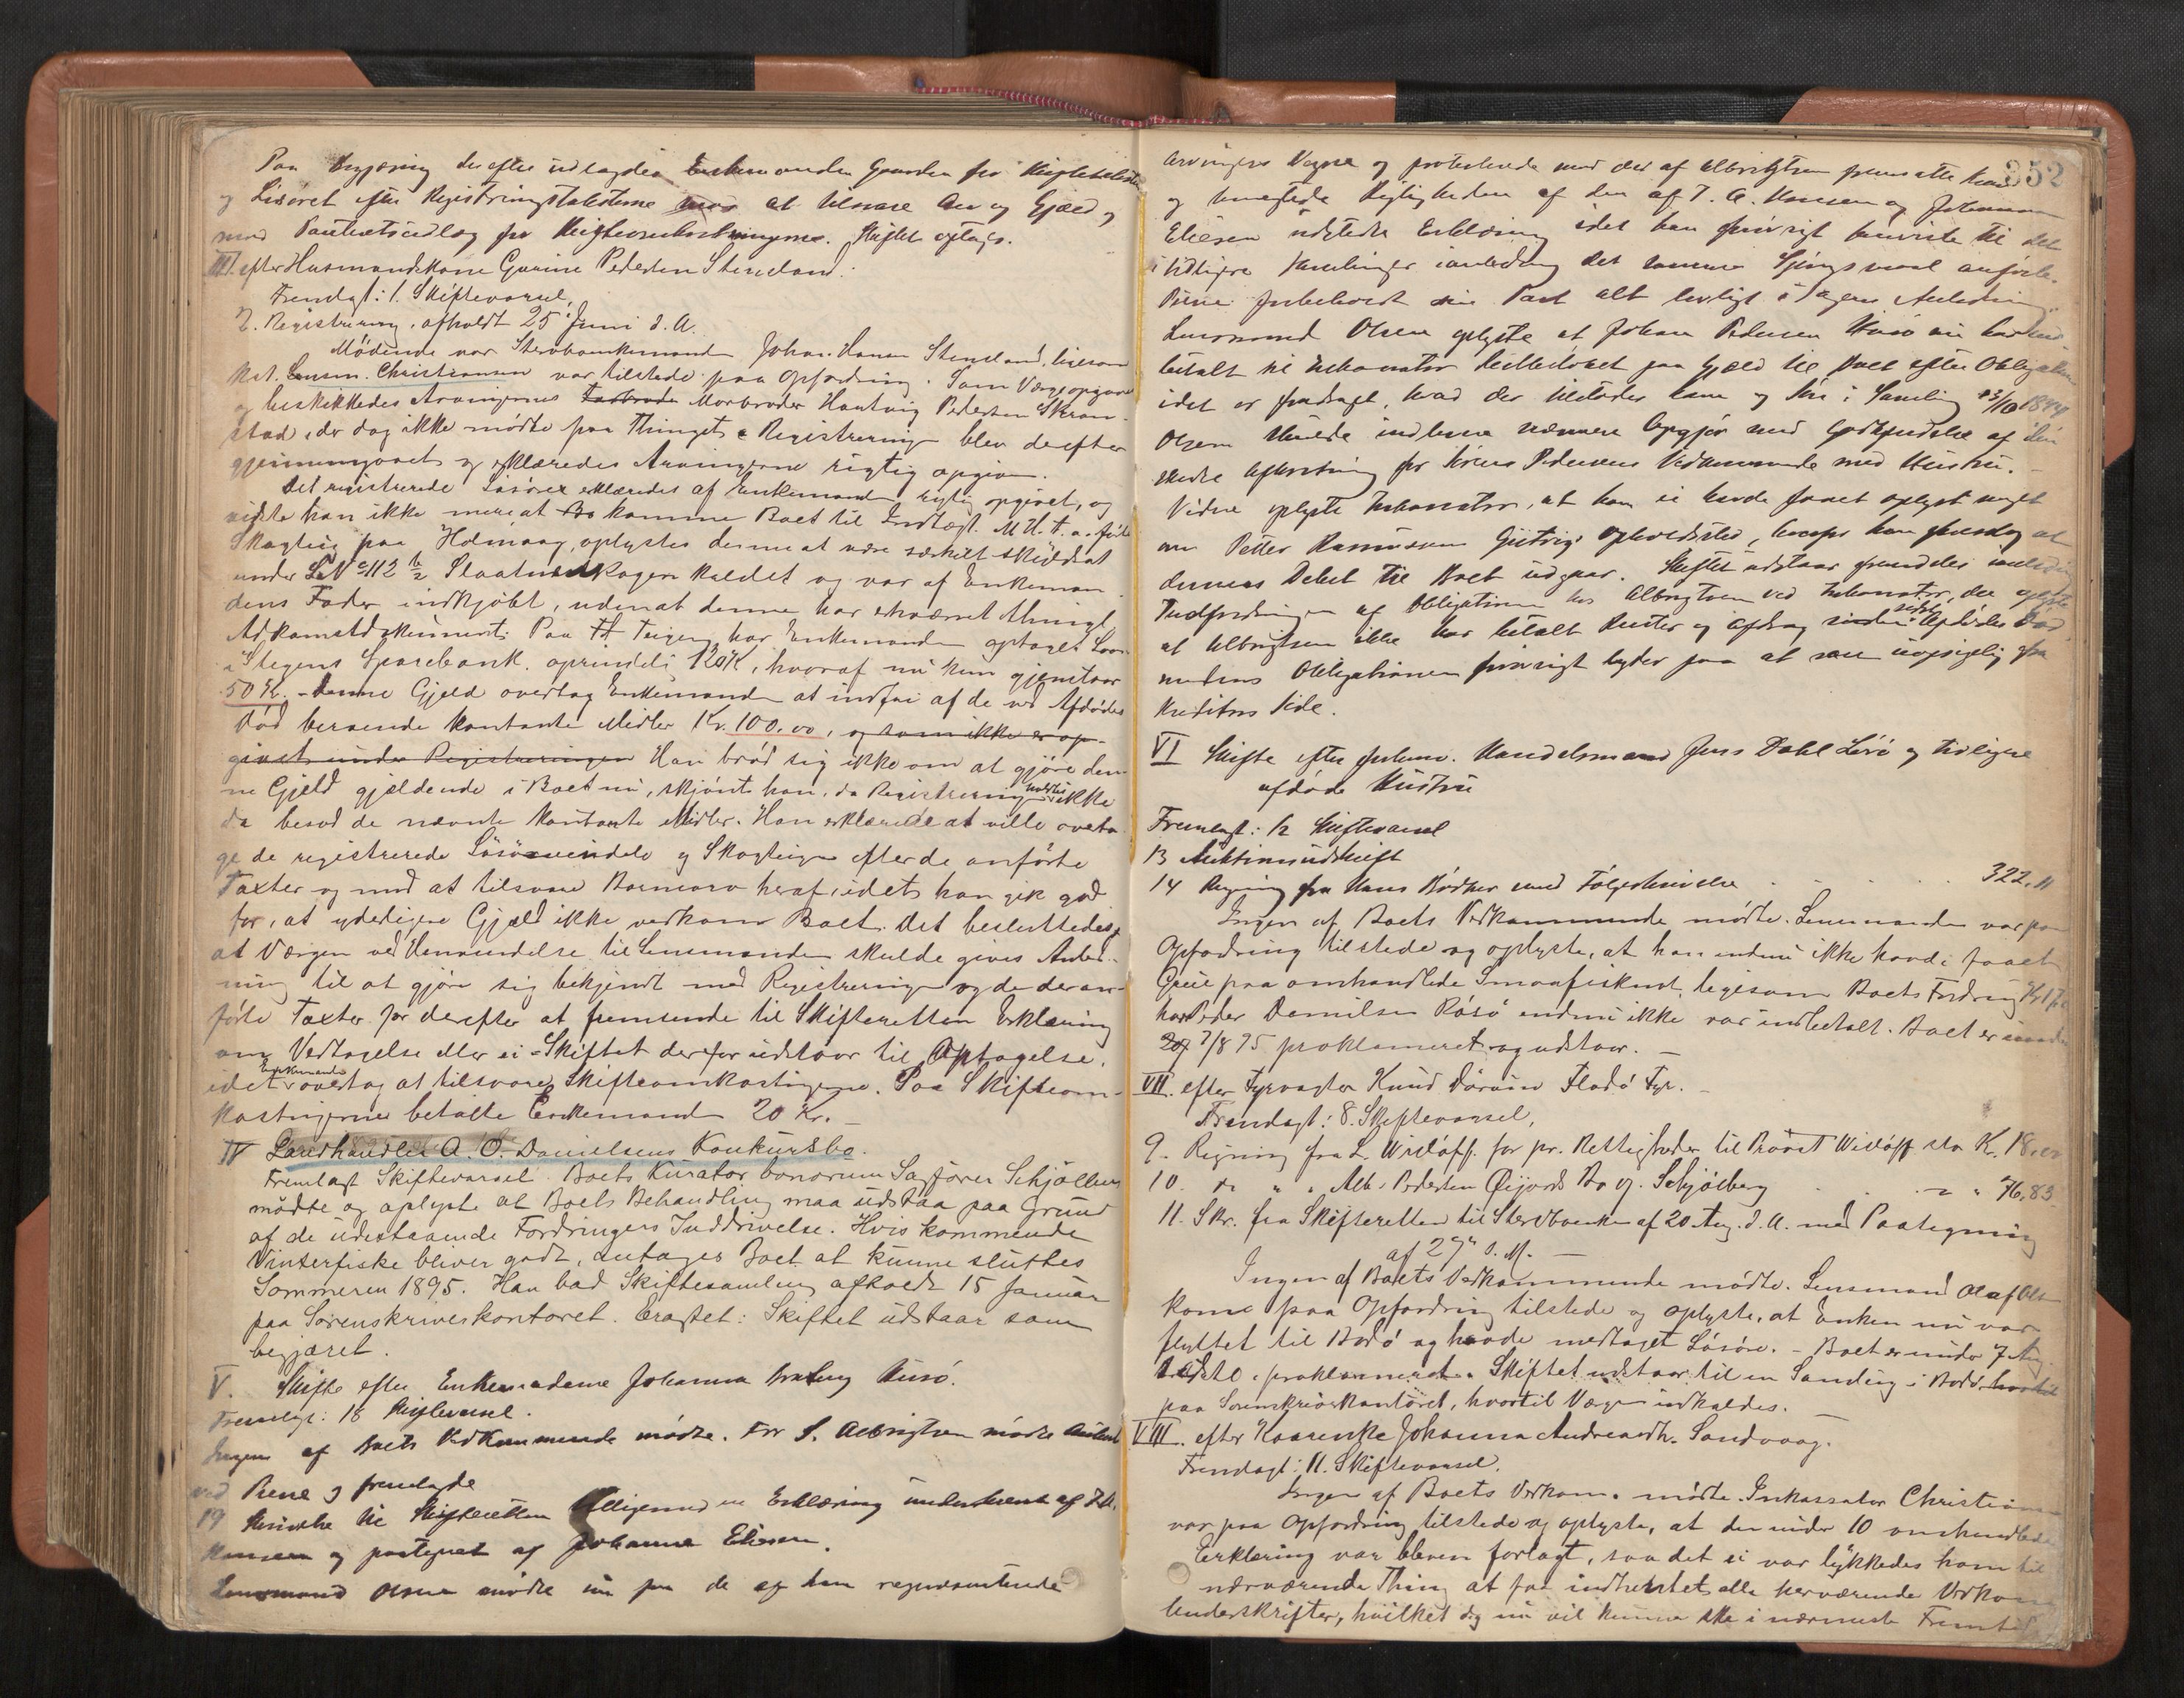 Paa Begjæring derefter udlagdes Enkemanden Gaarden for
og Løsøret efter Registringstaksterne mod at tilsvare Arv og Gjæld og
med Panteretsudlæg for Skifteomkostningerne. Skiftet optages.
III. efter Husmandskone Gurine Pedersen Stensland.
Fremlagt: 1. Skiftevarsel,
2. Registrering, afholdt 25 Juni d. A.
Mødende var Sterboenkemanden Johan Hansen Stensland, ligesom
Kst. Lensm. Christiansen var tilstede paa Opfordring. Som Værge opgaves
og beskikkedes Arvingernes Farbroder Morbroder Hartvig Pedersen Skran-
stad, der dog ikke mødte paa Thinget. Registrering blev derefter
gjennemgaaet og erklæredes Arvingerne rigtig opgivne.
Det registrerede Løsøre erklæredes af Enkemanden rigtig opgivet, og
vidste han ikke mere at Bo komme Boet til Indtægt. M. H. t. anførte
Skogteig paa Holmaag, oplystes denne at være særskilt skyldsat
under L No 112 b/2 Slaatnesskogen kaldet og var af Enkeman-
dens Fader indkjøbt, uden at denne har erhvervet thinglyst
Adkomstdokument. Paa Teigen har Enkemanden optaget Laan
i Stegens Sparebank oprindelig 120 K, hvoraf nu kun gjenstaar
50 Kr. – Denne Gjeld overtog Enkemanden at indfri af de ved Afdødes
Død beroende kontante Midler Kr. 100.00, og som ikke er op-
givet under Registreringen Han brød sig ikke om at gjøre den-
ne Gjeld gjældende i Boet nu, skjønt han, da Registrering holdtes ikke
da besad de nævnte kontante Midler. Han erklærede at ville overta-
ge de registrerede Løsøreeiendele og Skogteigen efter de anførte
Taxter og mod at tilsvare Børnearv heraf, idet han gik god
for, at yderligere Gjæld ikke vedkom Boet. Det besluttedes,
at Værgen ved Henvendelse til Lensmanden skulde gives Anled-
ning til at gjøre sig bekjendt med Registreringen og de deran-
førte Taxter for derefter at fremsende til Skifteretten Erklæring
om Vedtagelse eller ei. Skiftet derfor udstaar til Optagelse,
idet Enkemanden overtog at tilsvare Skifteomkostningerne. Paa Skifteom-
kostningerne betalte Enkemanden 20 Kr. –
IV Landhandler A. O. Danielsens Konkursbo.
Fremlagt Skiftevarsel. Boets Kurator bonorum Sagfører Schjølberg
mødte og oplyste at Boets Behandling maa udstaa paa Grund
af de udestaaende Fordringers Inddrivelse. Hvis kommende
Vinterfiske bliver godt, antages Boet at kunne sluttes
Sommeren 1895. Han bad Skiftesamling afholdt 15 Januar
paa Sorenskriverkontoret. Eragtet: Skiftet udstaar som
begjæret.
V. Skifte efter Enkemadame Johanna Husø.
Fremlagt: 18 Skiftevarsel.
Ingen af Boets Vedkommende mødte. For S. Albrigtsen mødte
ved Piene og fremlagde
19 Skrivelse til Skifteretten tilligemed en Erklæring underskrevet af T. A.
Hansen og paategnet af Johanna Eliesen.
Lensmand Olsen mødte nu for de af ham repræsenterede
352
Arvingers Vegne og protesterede mod det af Albrigtsen fremsatte Krav
og benegtede Rigtigheden af den af T. A. Hansen og Johanna
Eliesen udstedte Erklæring idet han forøvrigt henviste til det
i tidligere Samlinger i anledning det samme Spørgsmaal anførte.
Piene forbeholdt sin Part alt lovligt i Sagens Anledning.
Lensmand Olsen oplyste at Johan Pedersen Husø nu har ind-
betalt til Inkassator Restbeløbet paa Gjæld til Boet efter Obligation
idet er fradraget, hvad der tilstodes ham og Sø: i Samling 23/10 1894
Olsen skulde indlevere nærmere Opgjør med Godkjendelse af den
skedte Afkortning for Jens Pedersens Vedkommende med Hustru. –
Videre oplyste Inkassator, at han ei havde faaet oplyst noget
om Petter Rasmussens Gjøtvigs Opholdssted, hvorfor han foreslog at
dennes Debet til Boet udgaar. Skiftet udstaar fremdeles i anledning
Indfordringen af Obligationen hos Albrigtsen ved Inkassator, der oplyste
at Albrigtsen ikke har betalt Renter og Afdrag siden Afdødes Død
medens Obligationen forøvrigt lyder paa at være uopsigelig fra
Kreditors Side.
VI Skifte efter forhenv. Handelsmand Jens Dahl Løvø og tidligere
afdøde Hustru
Fremlagt: 12 Skiftevarsel
13 Auktionsudskrift
14 Regning fra Hans Bødker med Følgeskrivelse . . . . 322. "
Ingen af Boets Vedkommende mødte. Lensmanden var paa
Opfordring tilstede og oplyste, at han endnu ikke havde faaet
Greie paa omhandlede Smaafiskeri, ligesom Boets Fordring Kr 17
hos Peder Danielsen Røsø endnu ikke var indbetalt. Boet er under
7/8 95 proklameret og udstaar. –
VII. efter Fyrvogter Knud Dørum Flodø Fyr.
Fremlagt: 8. Skiftevarsel,
9. Regning fra L. Wisløff for pr. Rettigheder til Provst Wisløff sto K. 18.00
10. do " " Alb. Pedersen Øijords Bo v. Schjølberg . . – " 76.83
11. Skr. fra Skifteretten til Sterboenken af 20 Aug. d. A. med Paategning
af 29de s. M. –
Ingen af Boets Vedkommende mødte. Lensmand Olaf
kom paa Opfordring tilstede og oplyste, at Enken nu var
flyttet til Bodø og havde medtaget Løsøre. – Boet er under 7 Aug.
proklameret. Skiftet udstaar til en Samling i Bodø hvortil
paa Sorenskriverkontoret, hvortil Værgen indkaldes.
VIII. efter Kaarenke Johanna Andreasdtr. Sandvaag.
Fremlagt: 11. Skiftevarsel.
Ingen af Boets Vedkom. mødte. Inkassator Christiansen
var paa Opfordring tilstede og oplyste, at den under 10 omhandlede
Erklæring var bleven forlagt, saa det ei var lykkedes ham til
nærværende Thing at faa indhentet alle herværende Vedkom.
Underskrifter, hvilket dog nu vil kunne ske i nærmeste Fremtid